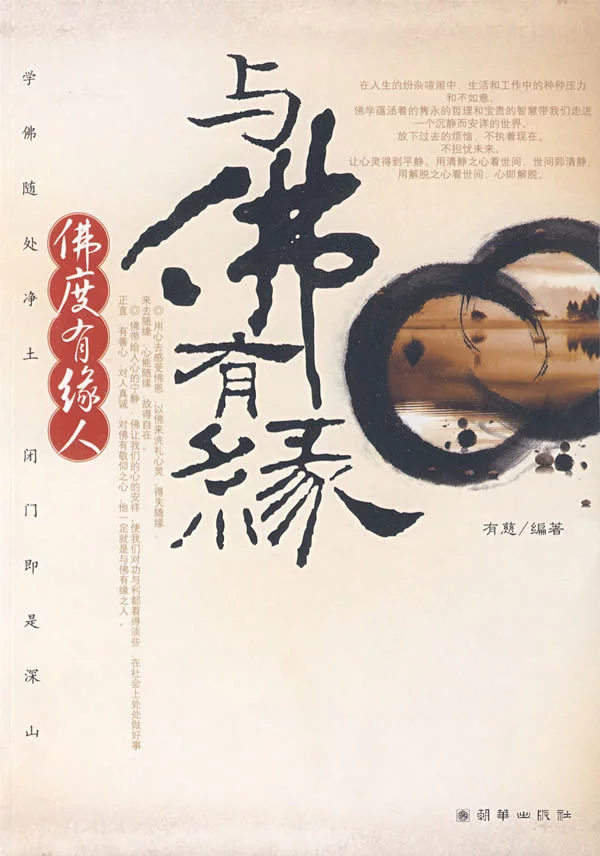 与佛有緣
佛度有缘人
学佛随处净土 闭门即是深山
在人生的纷杂喧闹中，生活和工作中的种种压力
和不如意。
佛学蕴涵着的隽永的哲理和宝贵的智慧带我们走进
一个沉静而安详的世界。
放下过去的烦恼，不执着现在。
不担忧未来。
让心灵得到平静。用清静之心看世间，世间即清静，
用解脱之心看世间，心即解脱。
◎ 用心去感受佛恩，以佛来洗礼心灵，得失随缘，
来去随缘，心能随缘，故得自在。
◎ 佛带给人心的宁静，佛让我们的心的安祥，使我们对功与利都看得淡些，在社会上处处做好事
正直，有善心，对人真诚，对佛有敬仰之心，他一定就是与佛有缘之人。
有慈/编著
朝華出版社